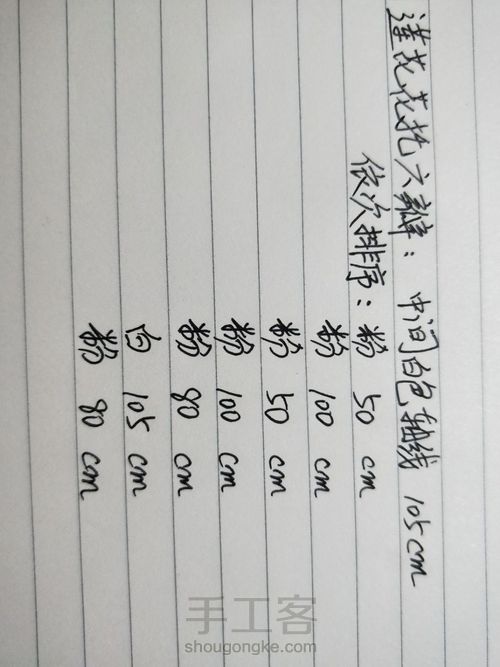 莲花花托六瓣：中间白色轴线 105cm
依次排序：粉 50 cm
粉 100 cm
粉 50 cm
粉 100 cm
粉 80 cm
白 105 cm
粉 80 cm
手工客
shougongke.com